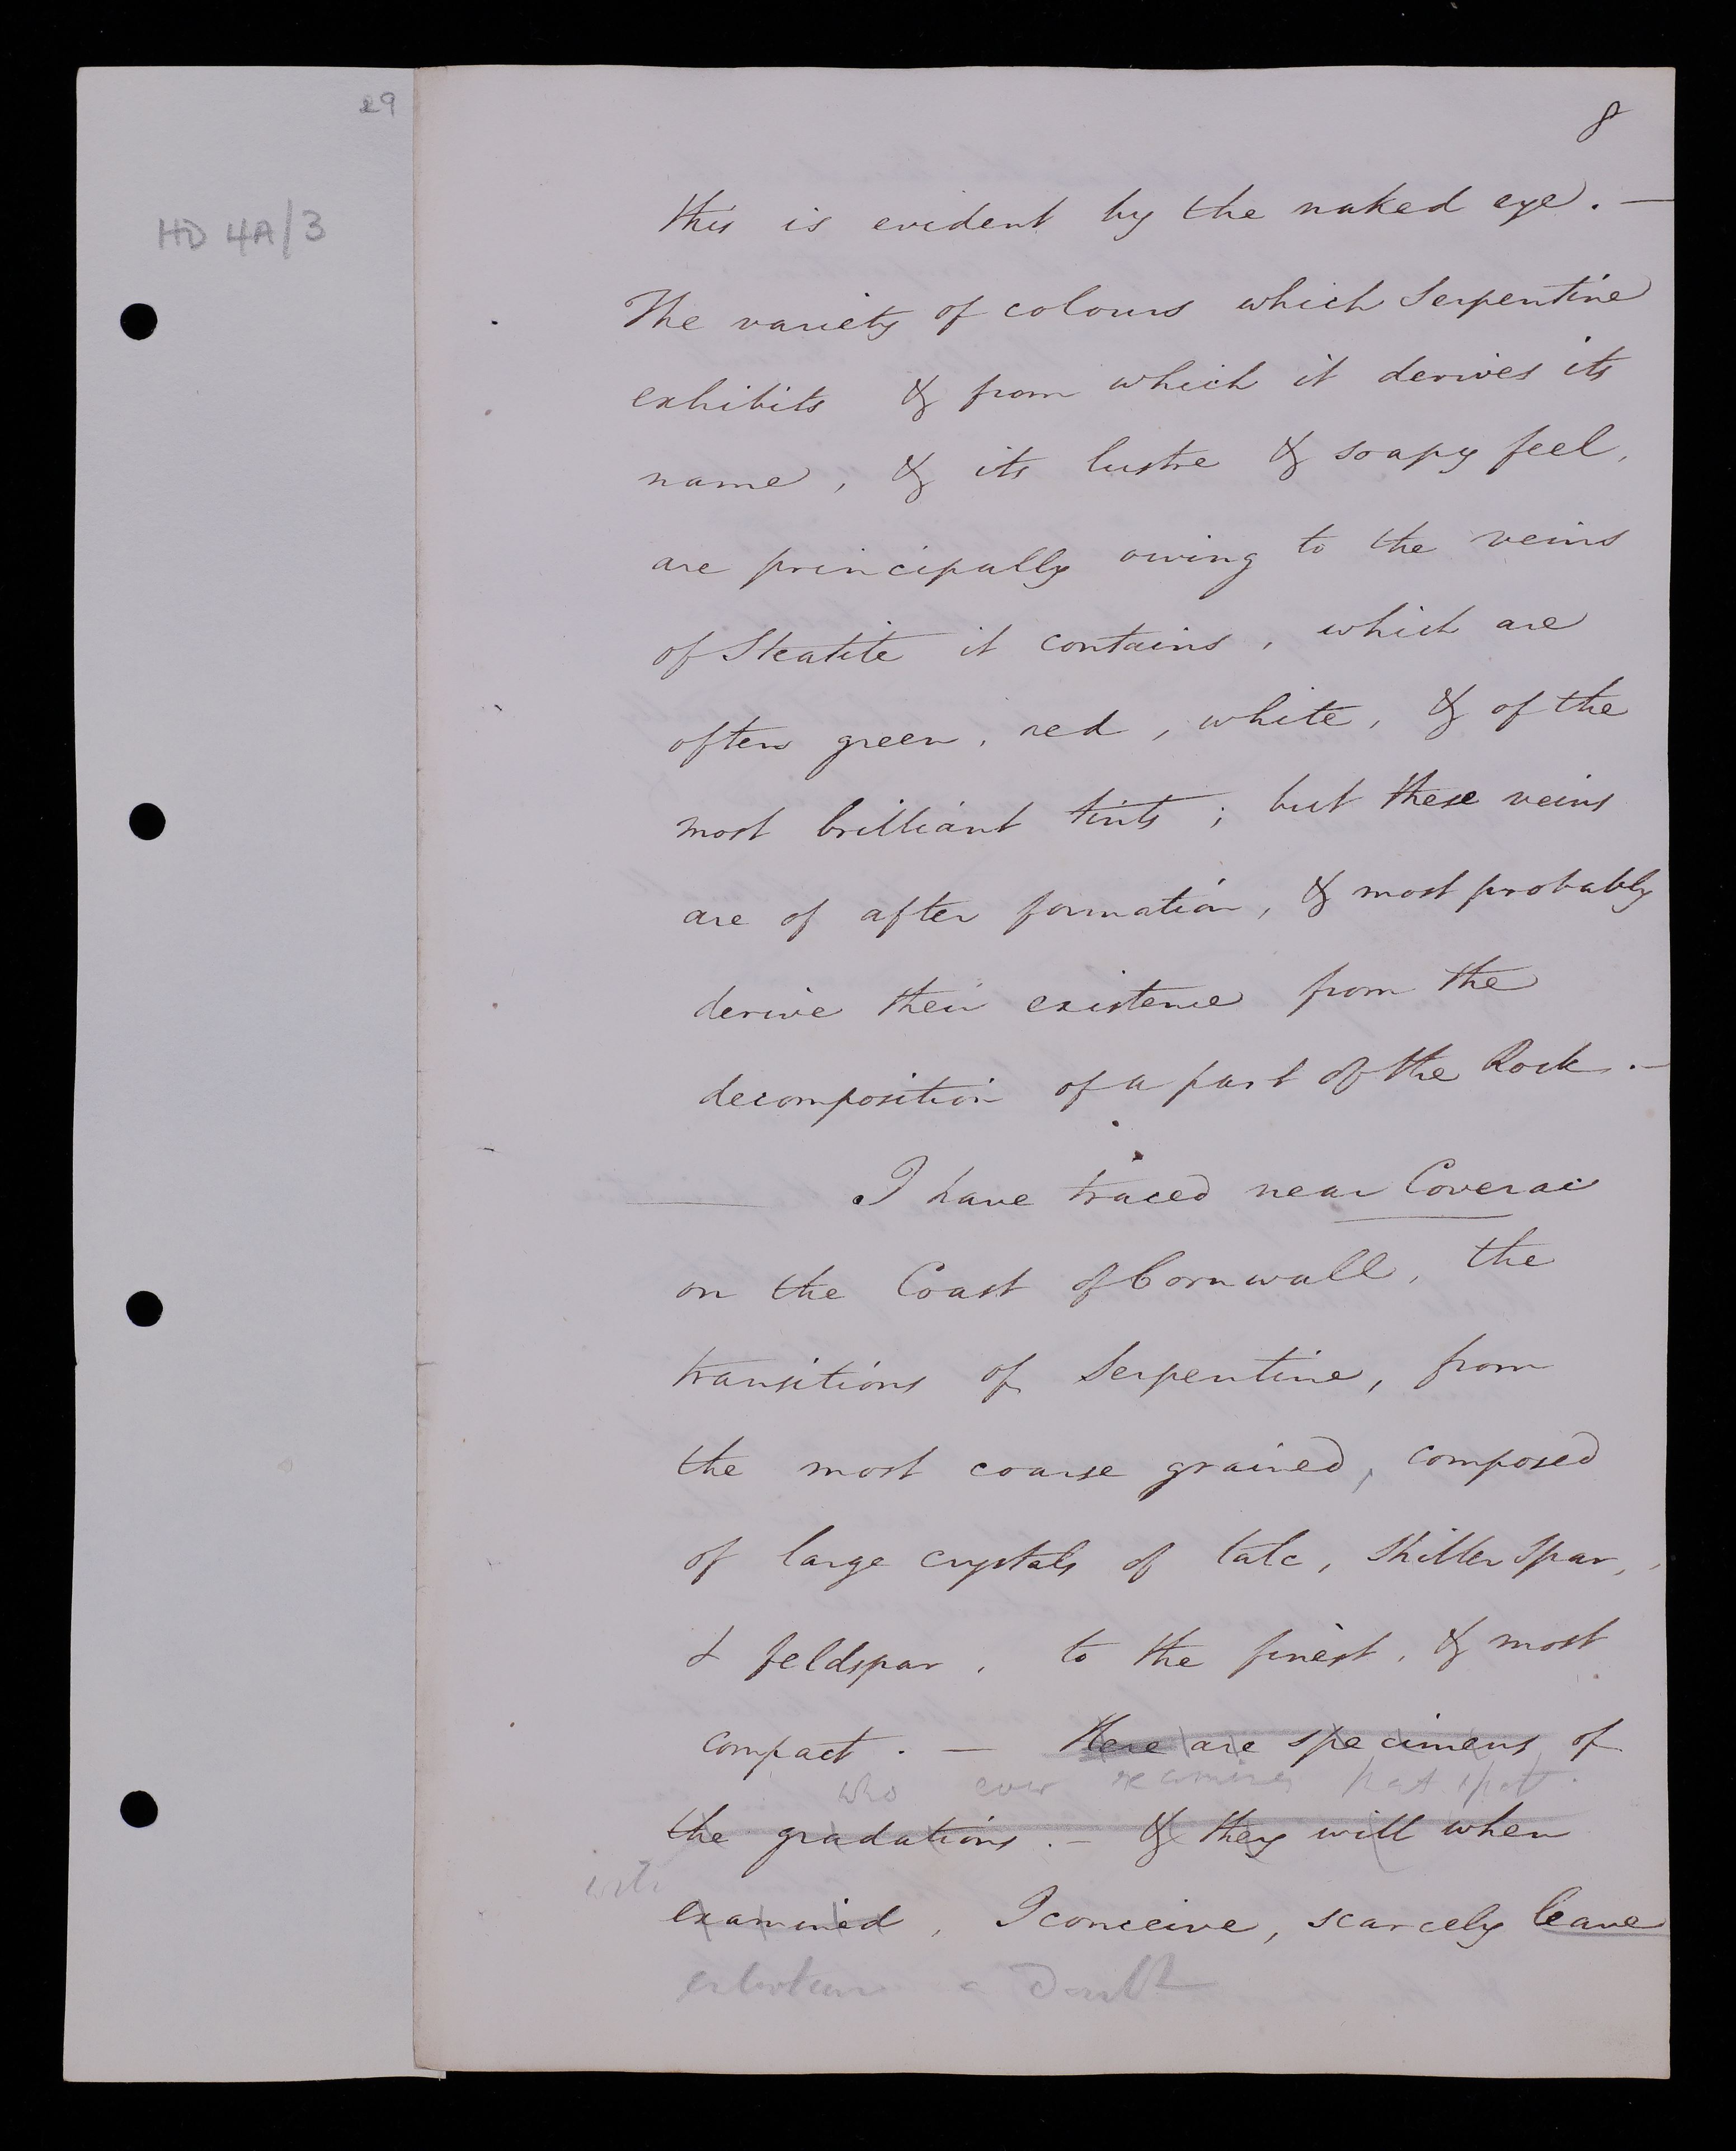 29
HD 4A/3
8
this is evident by the naked eye. —
The variety of colours which Serpentine
exhibits & from which it derives its
name, & its lustre & soapy feel,
are principally owing to the veins
of Steatite it contains, which are
often green, red, white, & of the
most brilliant tints; but these veins
are of after formation, & most probably
derive their existence from the
decomposition of a part of the Rock. —
I have traced near Coverac
on the Coast of Cornwall, the
transitions of Serpentine, from
the most coarse grained, composed
of large crystals of talc, Shiller Spar,
& feldspar, to the finest, & most
compact. — there are specimens of
who ever examines that spot
the gradations. — & they will when
will
examined, I conceive, scarcely leave
entertain a doubt